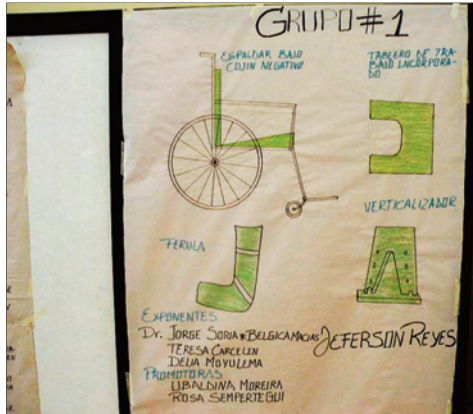 GRUPO #1
ESPALDAR BAJO
COJIN NEGATIVO
TABLERO DE TRA-
BAJO INCORPORA-
DO
VERTICALIZADOR
FERULA
EXPONENTES
Dr. JORGE SORIA * BELGICA MACIAS JEFERSON REYES
TERESA CARCELEN
DELIA MOYULEMA
PROMOTORAS
UBALDINA MOREIRA
ROSA SEMPERTEGUI